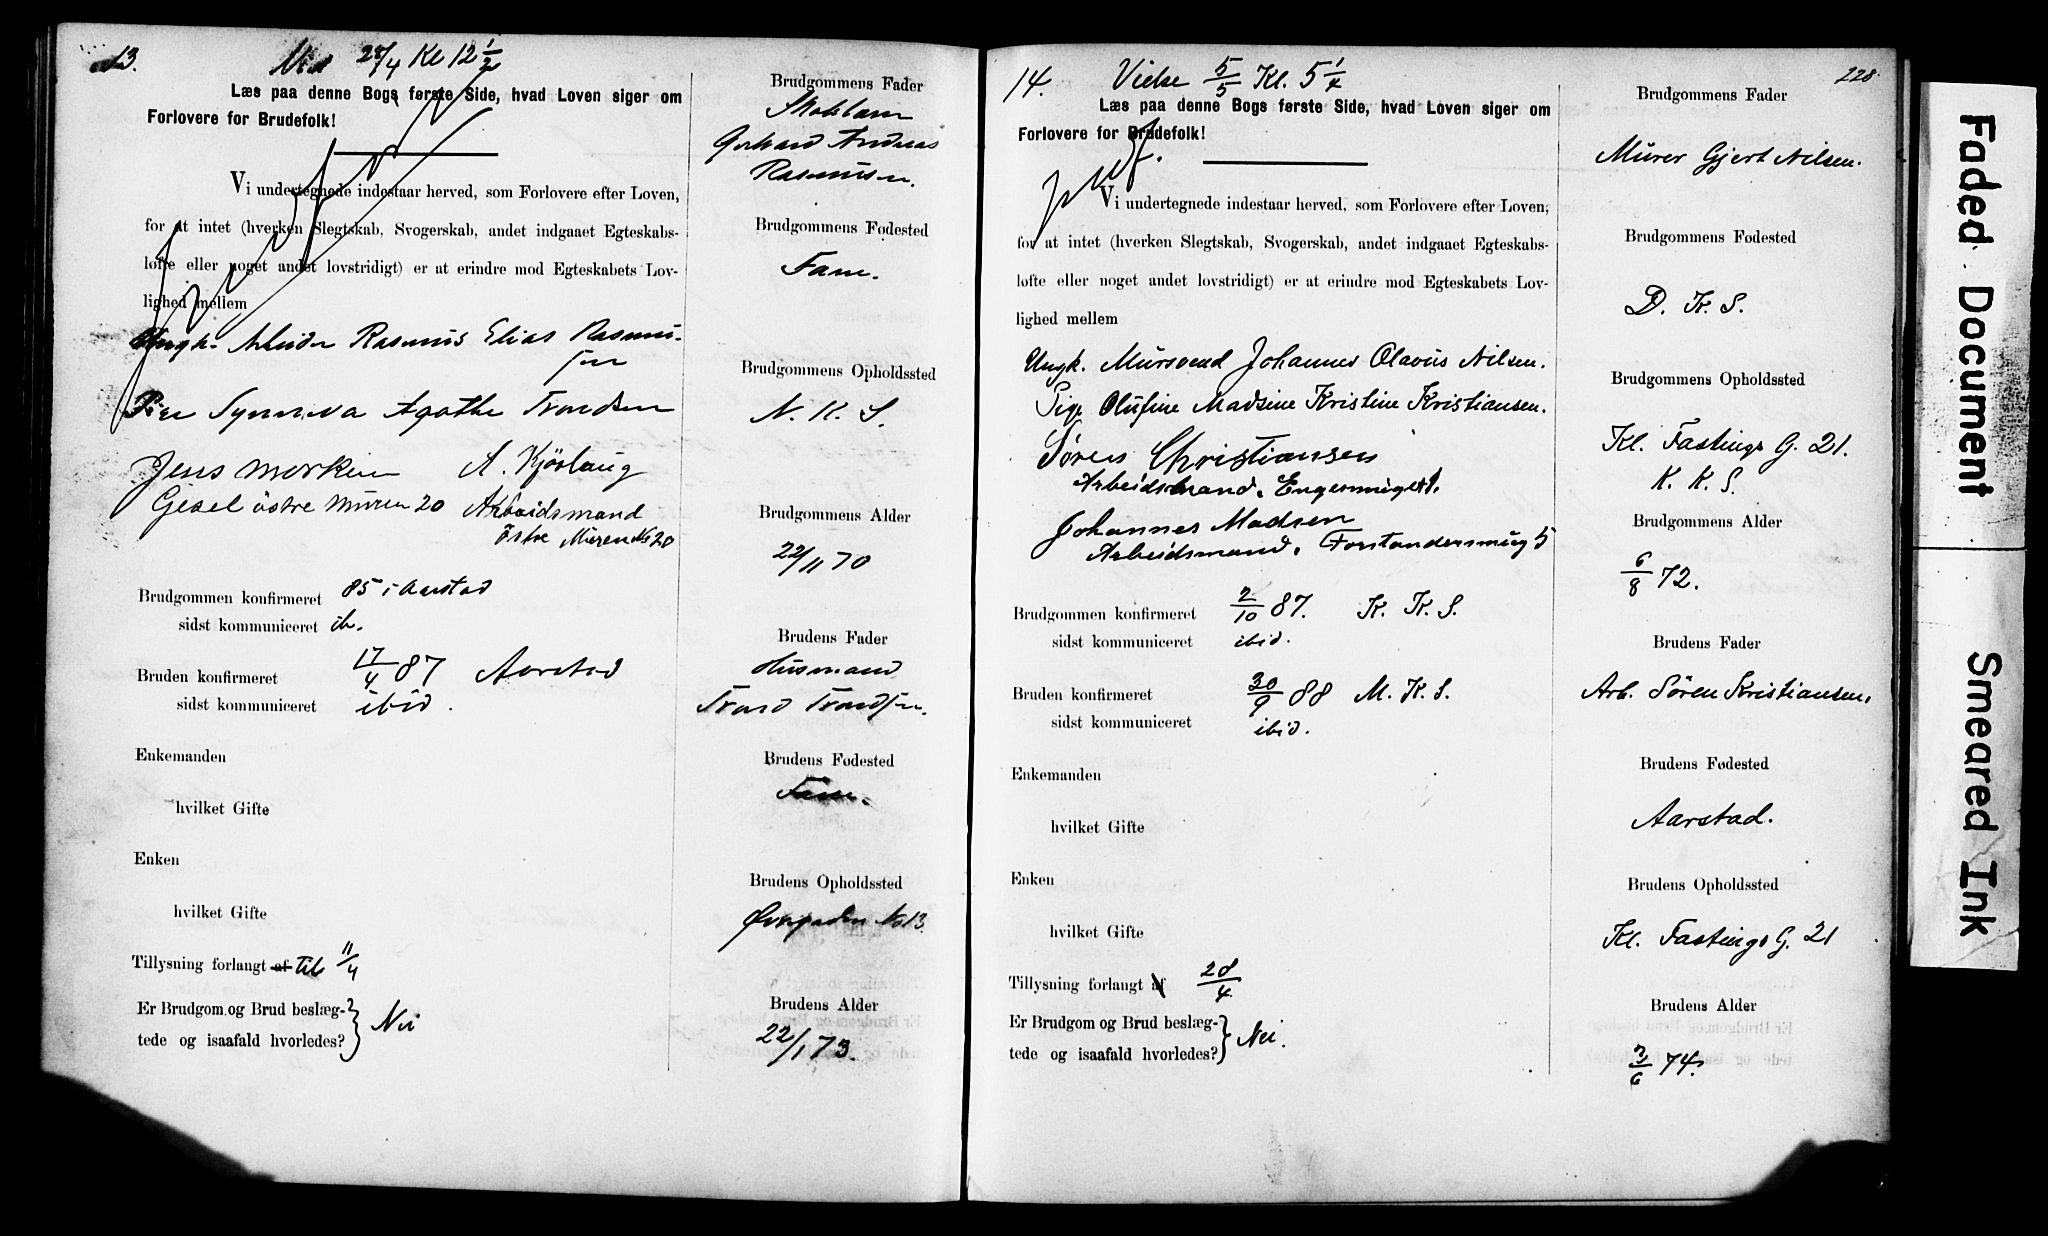 13.
28/4 Kl 12 1/2
Læs paa denne Bogs første Side, hvad Loven siger om
Forlovere for Brudefolk!
Vi undertegnede indestaar herved, som Forlovere efter Loven,
for at intet (hverken Slegtskab, Svogerskab, andet indgaaet Egteskabs-
løfte eller noget andet lovstridigt) er at erindre mod Egteskabets Lov-
lighed mellem
Ungk. Arbeider Rasmus Elias Rasmus-
sen
Pige Synneva Agathe Trondsen
Jens Morken A. Kjørlaug
Gesel østre Muren 20 Arbeidsmand
østre Muren No 20
Brudgommen konfirmeret 85 i Aarstad
sidst kommuniceret ib.
Bruden konfirmeret 17/4 87 Aarstad
sidst kommuniceret ibid.
Enkemanden
hvilket Gifte
Enken
hvilket Gifte
Tillysning forlangt af til 11/4
Er Brudgom og Brud beslæg-
tede og isaafald hvorledes? Nei
Brudgommens Fader
Gerhard Andreas
Rasmusen.
Brudgommens Fødested
Fane.
Brudgommens Opholdssted
N. K. S.
Brudgommens Alder
22/11 70
Brudens Fader
Husmand
Trond Trondsen.
Brudens Fødested
Fane.
Brudens Opholdssted
Øvregaden No 13.
Brudens Alder
22/1 73.
14. Vielse 5/5 Kl. 5 1/4
228.
Læs paa denne Bogs første Side, hvad Loven siger om
Forlovere for Brudefolk!
Vi undertegnede indestaar herved, som Forlovere efter Loven,
for at intet (hverken Slegtskab, Svogerskab, andet indgaaet Egteskabs-
løfte eller noget andet lovstridigt) er at erindre mod Egteskabets Lov-
lighed mellem
Ungk. Mursvend Johannes Olavus Nilsen.
Pige Olufine Madsine Kristine Kristiansen.
Søren Christiansen
Arbeidsmand. Engesmuget 1.
Johannes Madsen
Arbeidsmand. Forstandersmug 5
Brudgommen konfirmeret 2/10 87. K. K. S.
sidst kommuniceret ibid.
Bruden konfirmeret 30/9 88 M. K. S.
sidst kommuniceret ibid.
Enkemanden
hvilket Gifte
Enken
hvilket Gifte
Tillysning forlangt af 28/4
Er Brudgom og Brud beslæg-
tede og isaafald hvorledes? Nei.
Brudgommens Fader
Murer Gjert Nilsen.
Brudgommens Fødested
D. K. S.
Brudgommens Opholdssted
Kl. Fastings G. 21.
K. K. S.
Brudgommens Alder
6/8 72.
Brudens Fader
Arb. Søren Kristiansen.
Brudens Fødested
Aarstad.
Brudens Opholdssted
Kl. Fastings G. 21
Brudens Alder
3/6 74.
Faded Document
Smeared Ink